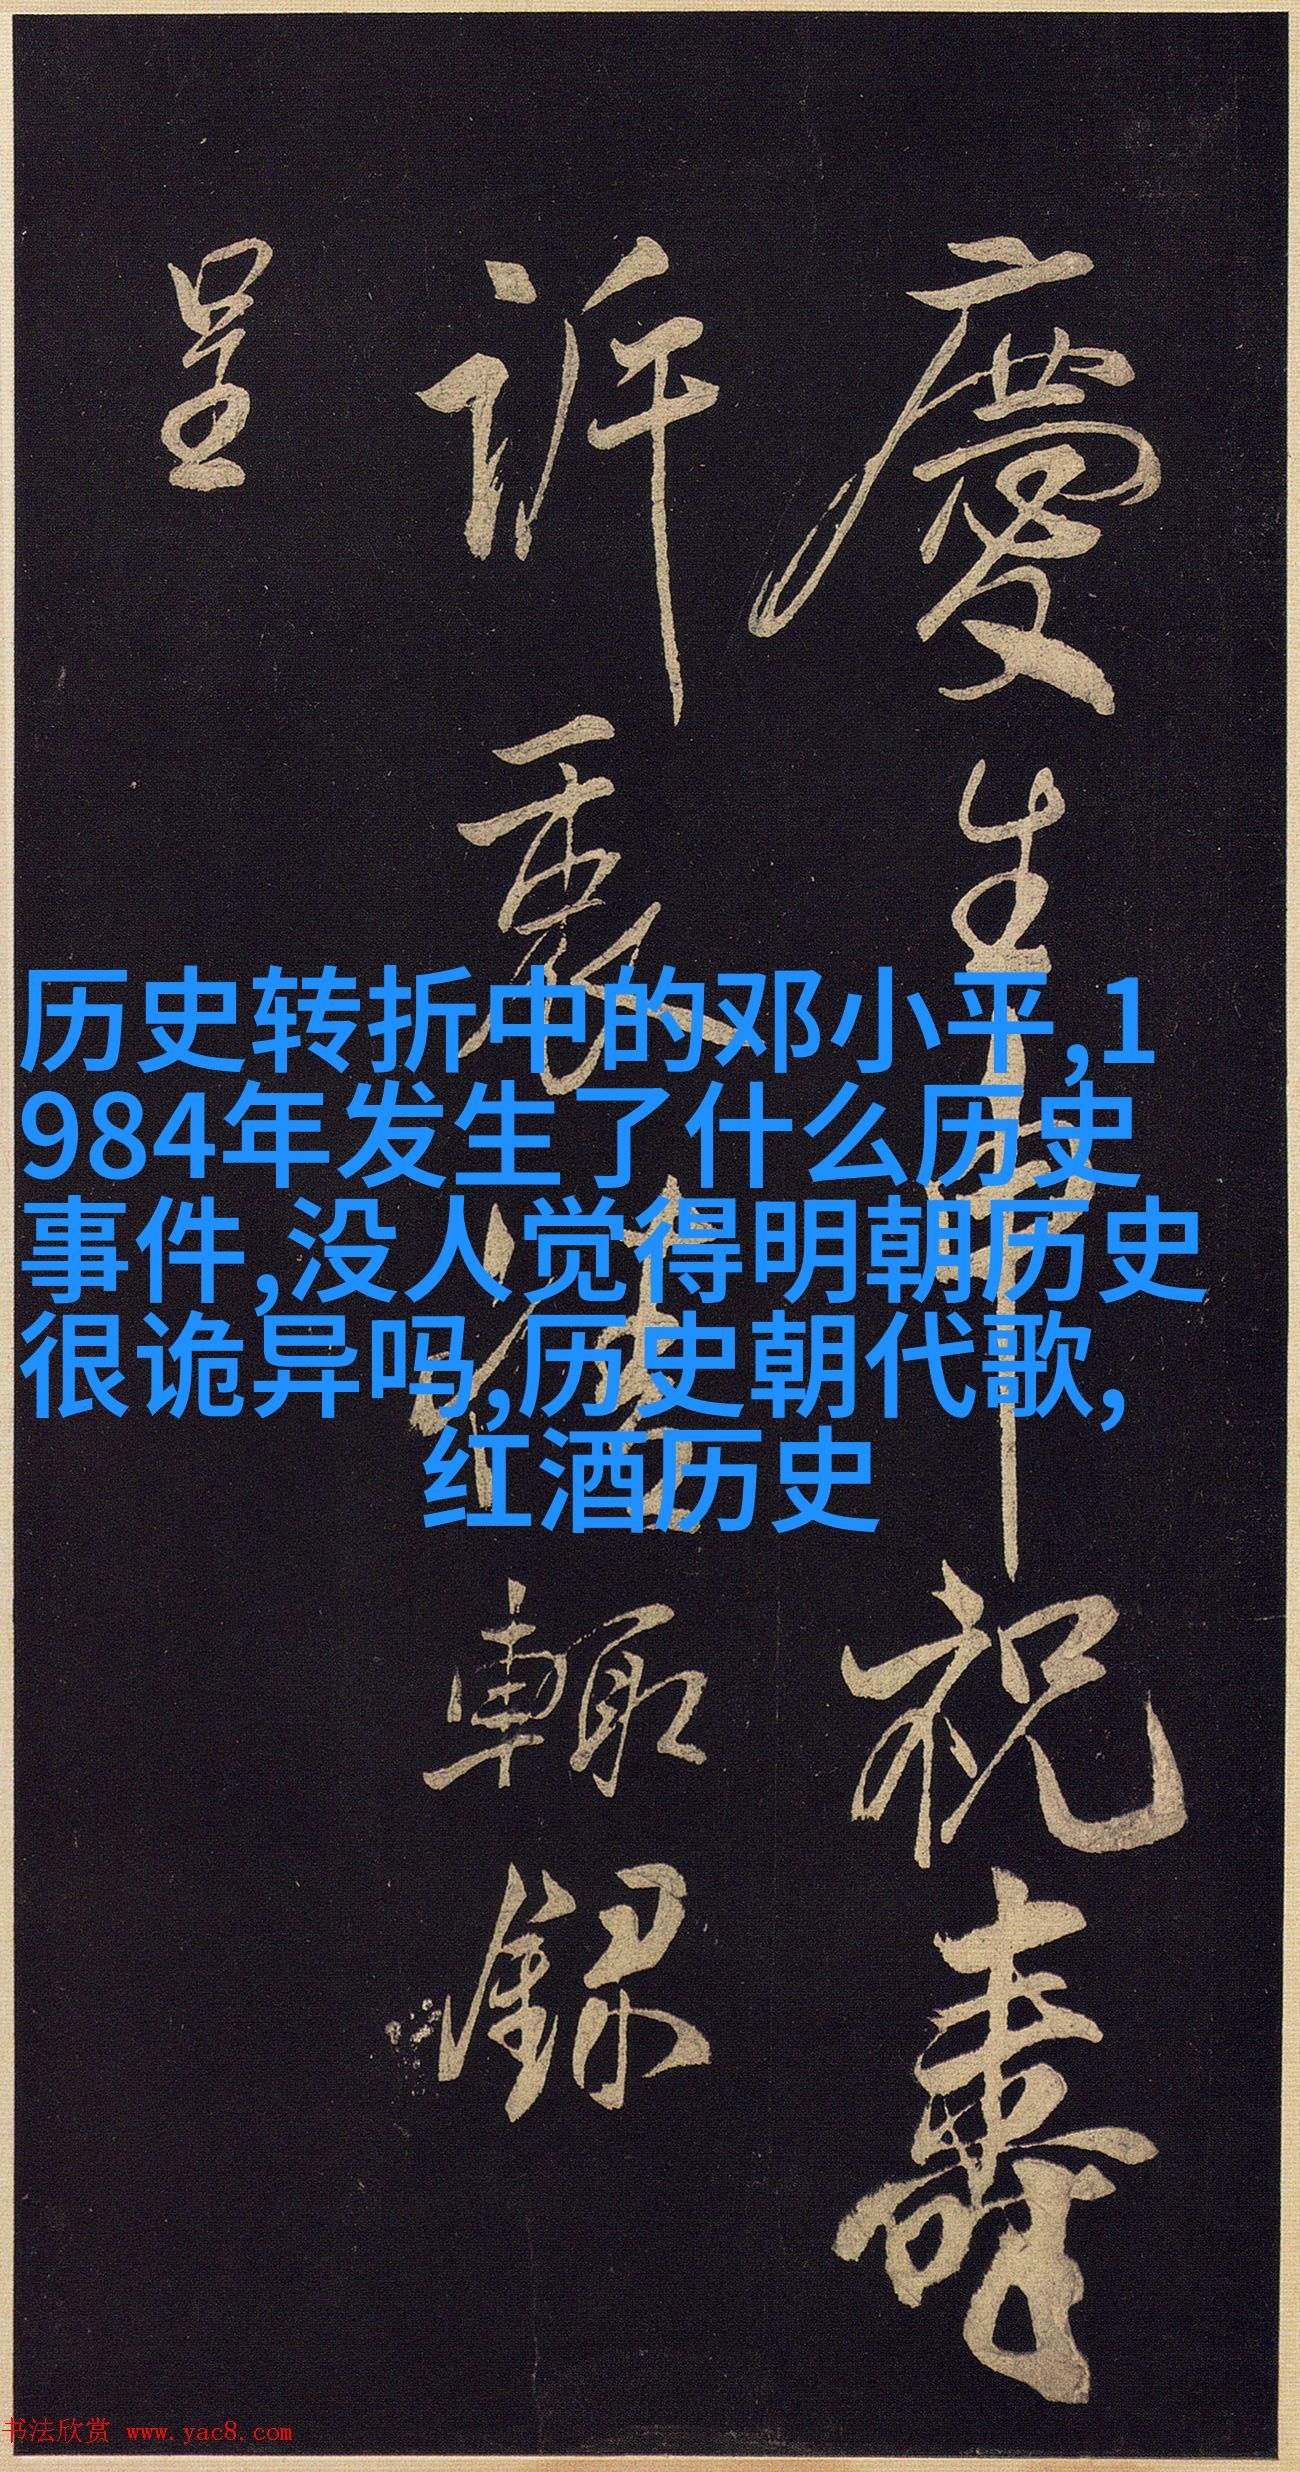 慶生申祝壽
訢裹
輙録
呈
历史转折中的邓小平,1
984年发生了什么历史
事件,没人觉得明朝历史
很诡异吗,历史朝代歌,
红酒历史
书法欣赏 www.yac8.com